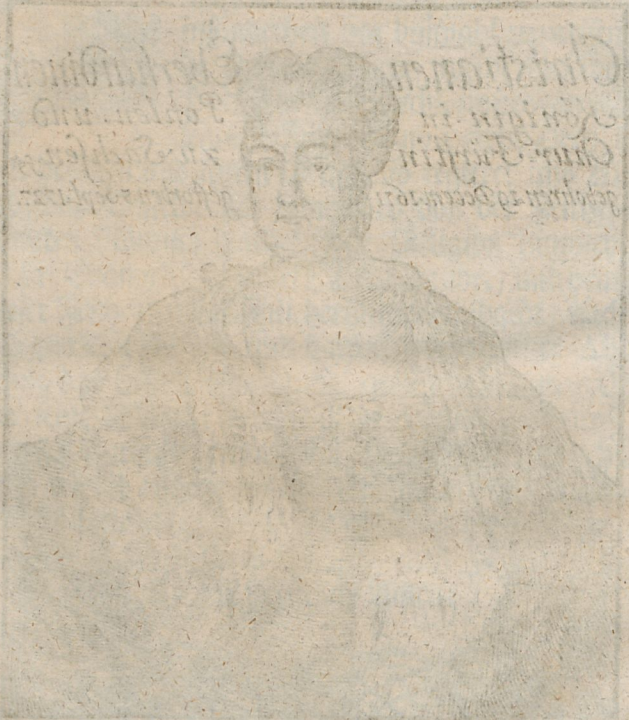 Christianen Eberhardinen
Königin in Pohlen, und
Chur-Fürstin zu Sachsen
gebohren 29 Decem. 1671 gestorben 5 Sept. 1727.